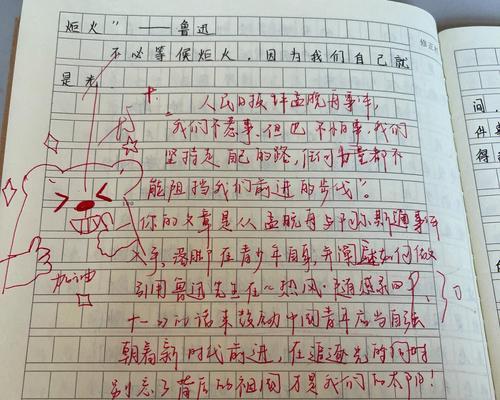 炬火”——鲁迅
不必等候炬火，因为我们自己就
是光。
人民日报评孟晚舟事件，
“我们不惹事，但也不怕事，我们
坚持走自己的路，任何力量都不
能阻挡我们前进的步伐”。
你的文章是从孟晚舟与阿尔斯通事件
在青少年自事，并阐述如何做
引用鲁迅先生在《热风·随感录四
十一》的话来鼓励中国青年应当自强
朝着新时代前进，在追逐光的同时
别忘了背后的祖国才是我们的太阳！
加油
修正栏
问
件
得